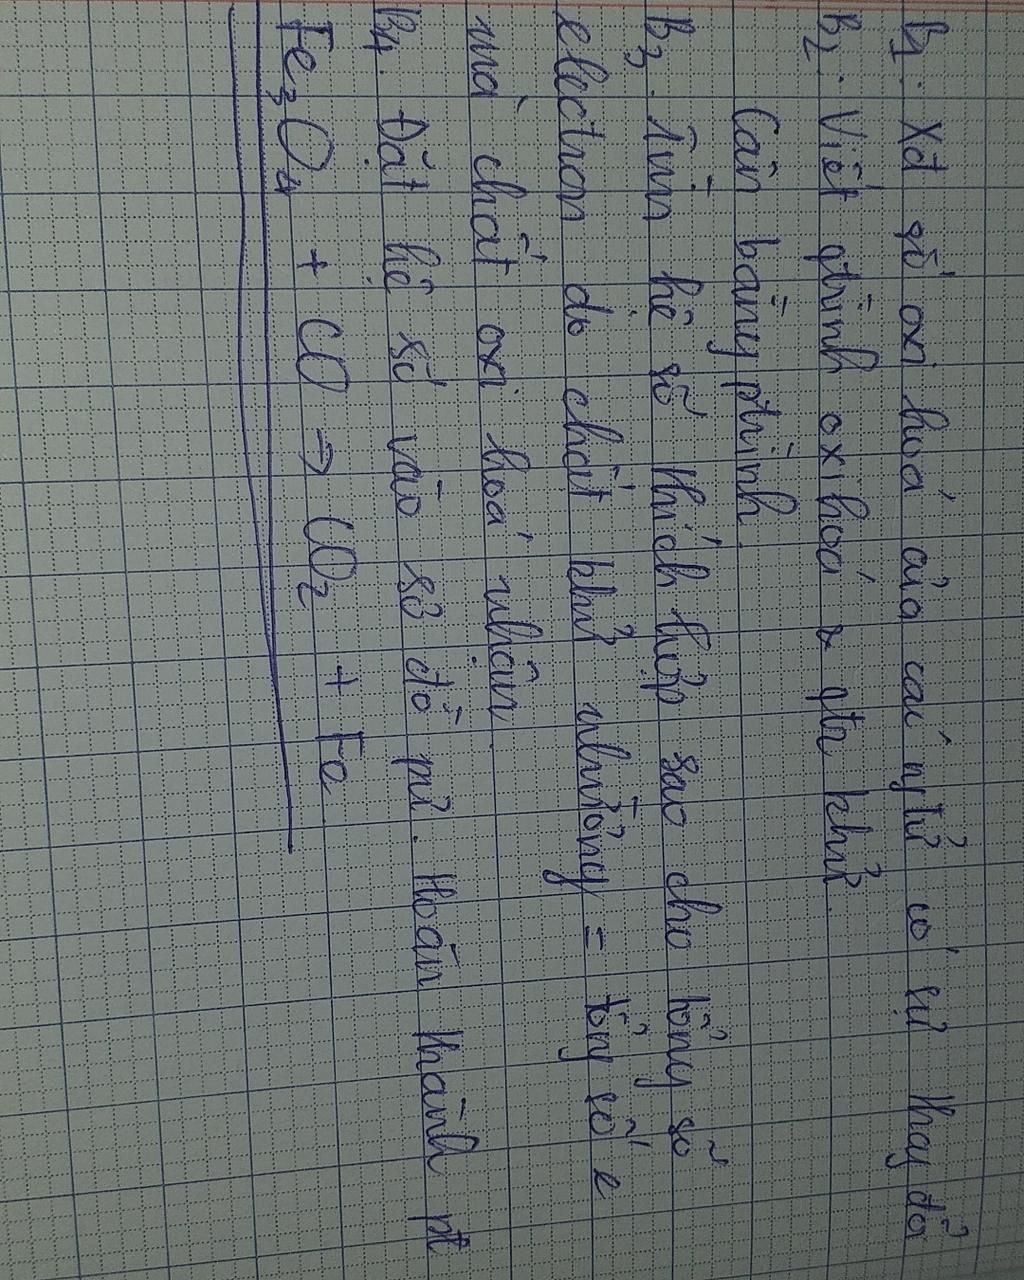 B1. Xđ số oxi hoá của các ngtử có sự thay đổi
B2. Viết qtrình oxi hoá & qtr khử.
Cân bằng ptrình.
B3. Tìm hệ số thích hợp sao cho tổng số
electron do chất khử nhường = tổng số e
mà chất oxi hoá nhận.
B4. Đặt hệ số vào sơ đồ pứ. Hoàn thành pt
Fe3O4 + CO → CO2 + Fe